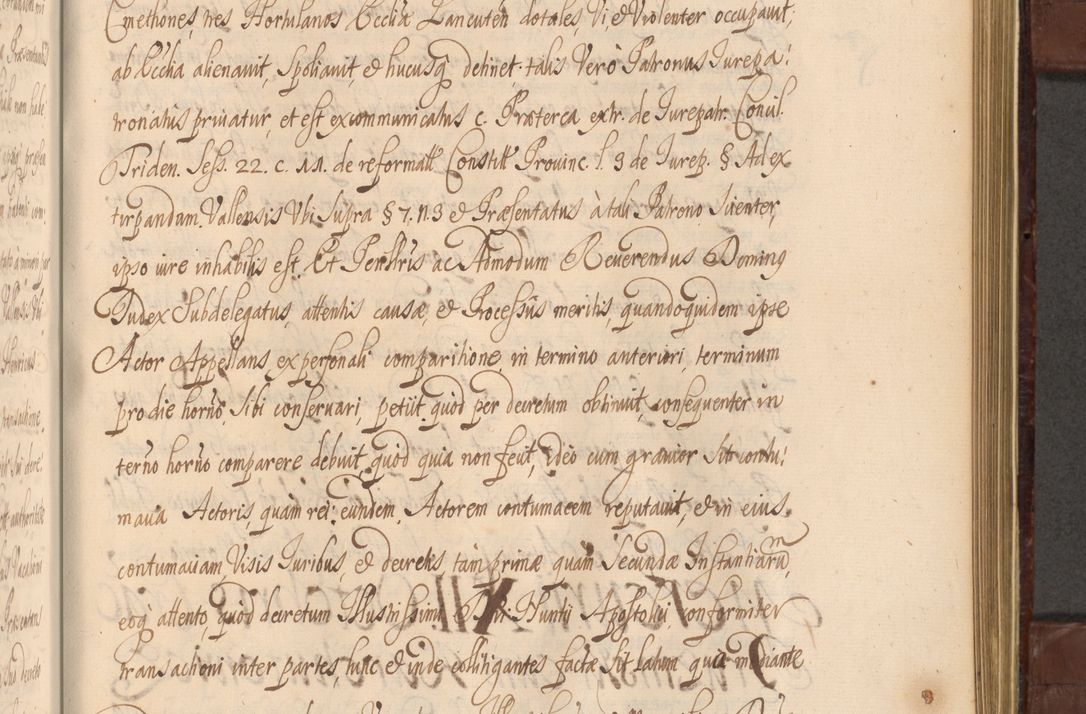 Cmethones, nes Hortulanos Ecclia Lancuten dotales, Vi, et Violenter occupavit,
ab Ecclia alienavit, Spoliavit, et hucusq detinet. talis Vero Patronus Jurepa:
tronatus privatur, et est excommunicatus c. Præterea extr. de Jurepatr. Concil.
Triden. Sess. 22. c. 11. de reformatt Constitt Provinc. l. 3 de Jurep. § Ad ex
tirpandam. Vallensis Ubi supra § 7. n. 3 et Præsentatus à tali Patrono Scienter,
ipso iure inhabilis est. Et Perillris ac Admodum Reverendus Dominus
Judex Subdelegatus, attentis causæ, et Processus meritis, quandoquidem ipse
Actor Appellans, ex personali comparitione, in termino anteriori, terminum
pro die horno, Sibi conservari, petiit, quod per decretum obtinuit, consequenter in
terno horno comparere debuit, quod quia non fecit, ideo cum gravior sit contu:
macia Actoris, quam rei: eundem, Actorem contumacem reputavit, et in eius,
contumaciam, Visis Juribus, et decretis, tam primæ quam Secundæ Instantiarum,
eoq attento, quod decretum Illustrissimi Dni Nuntij Apostolici, conformiter
transactioni inter partes, hinc et inde collitigantes factæ sit latum qua mediante